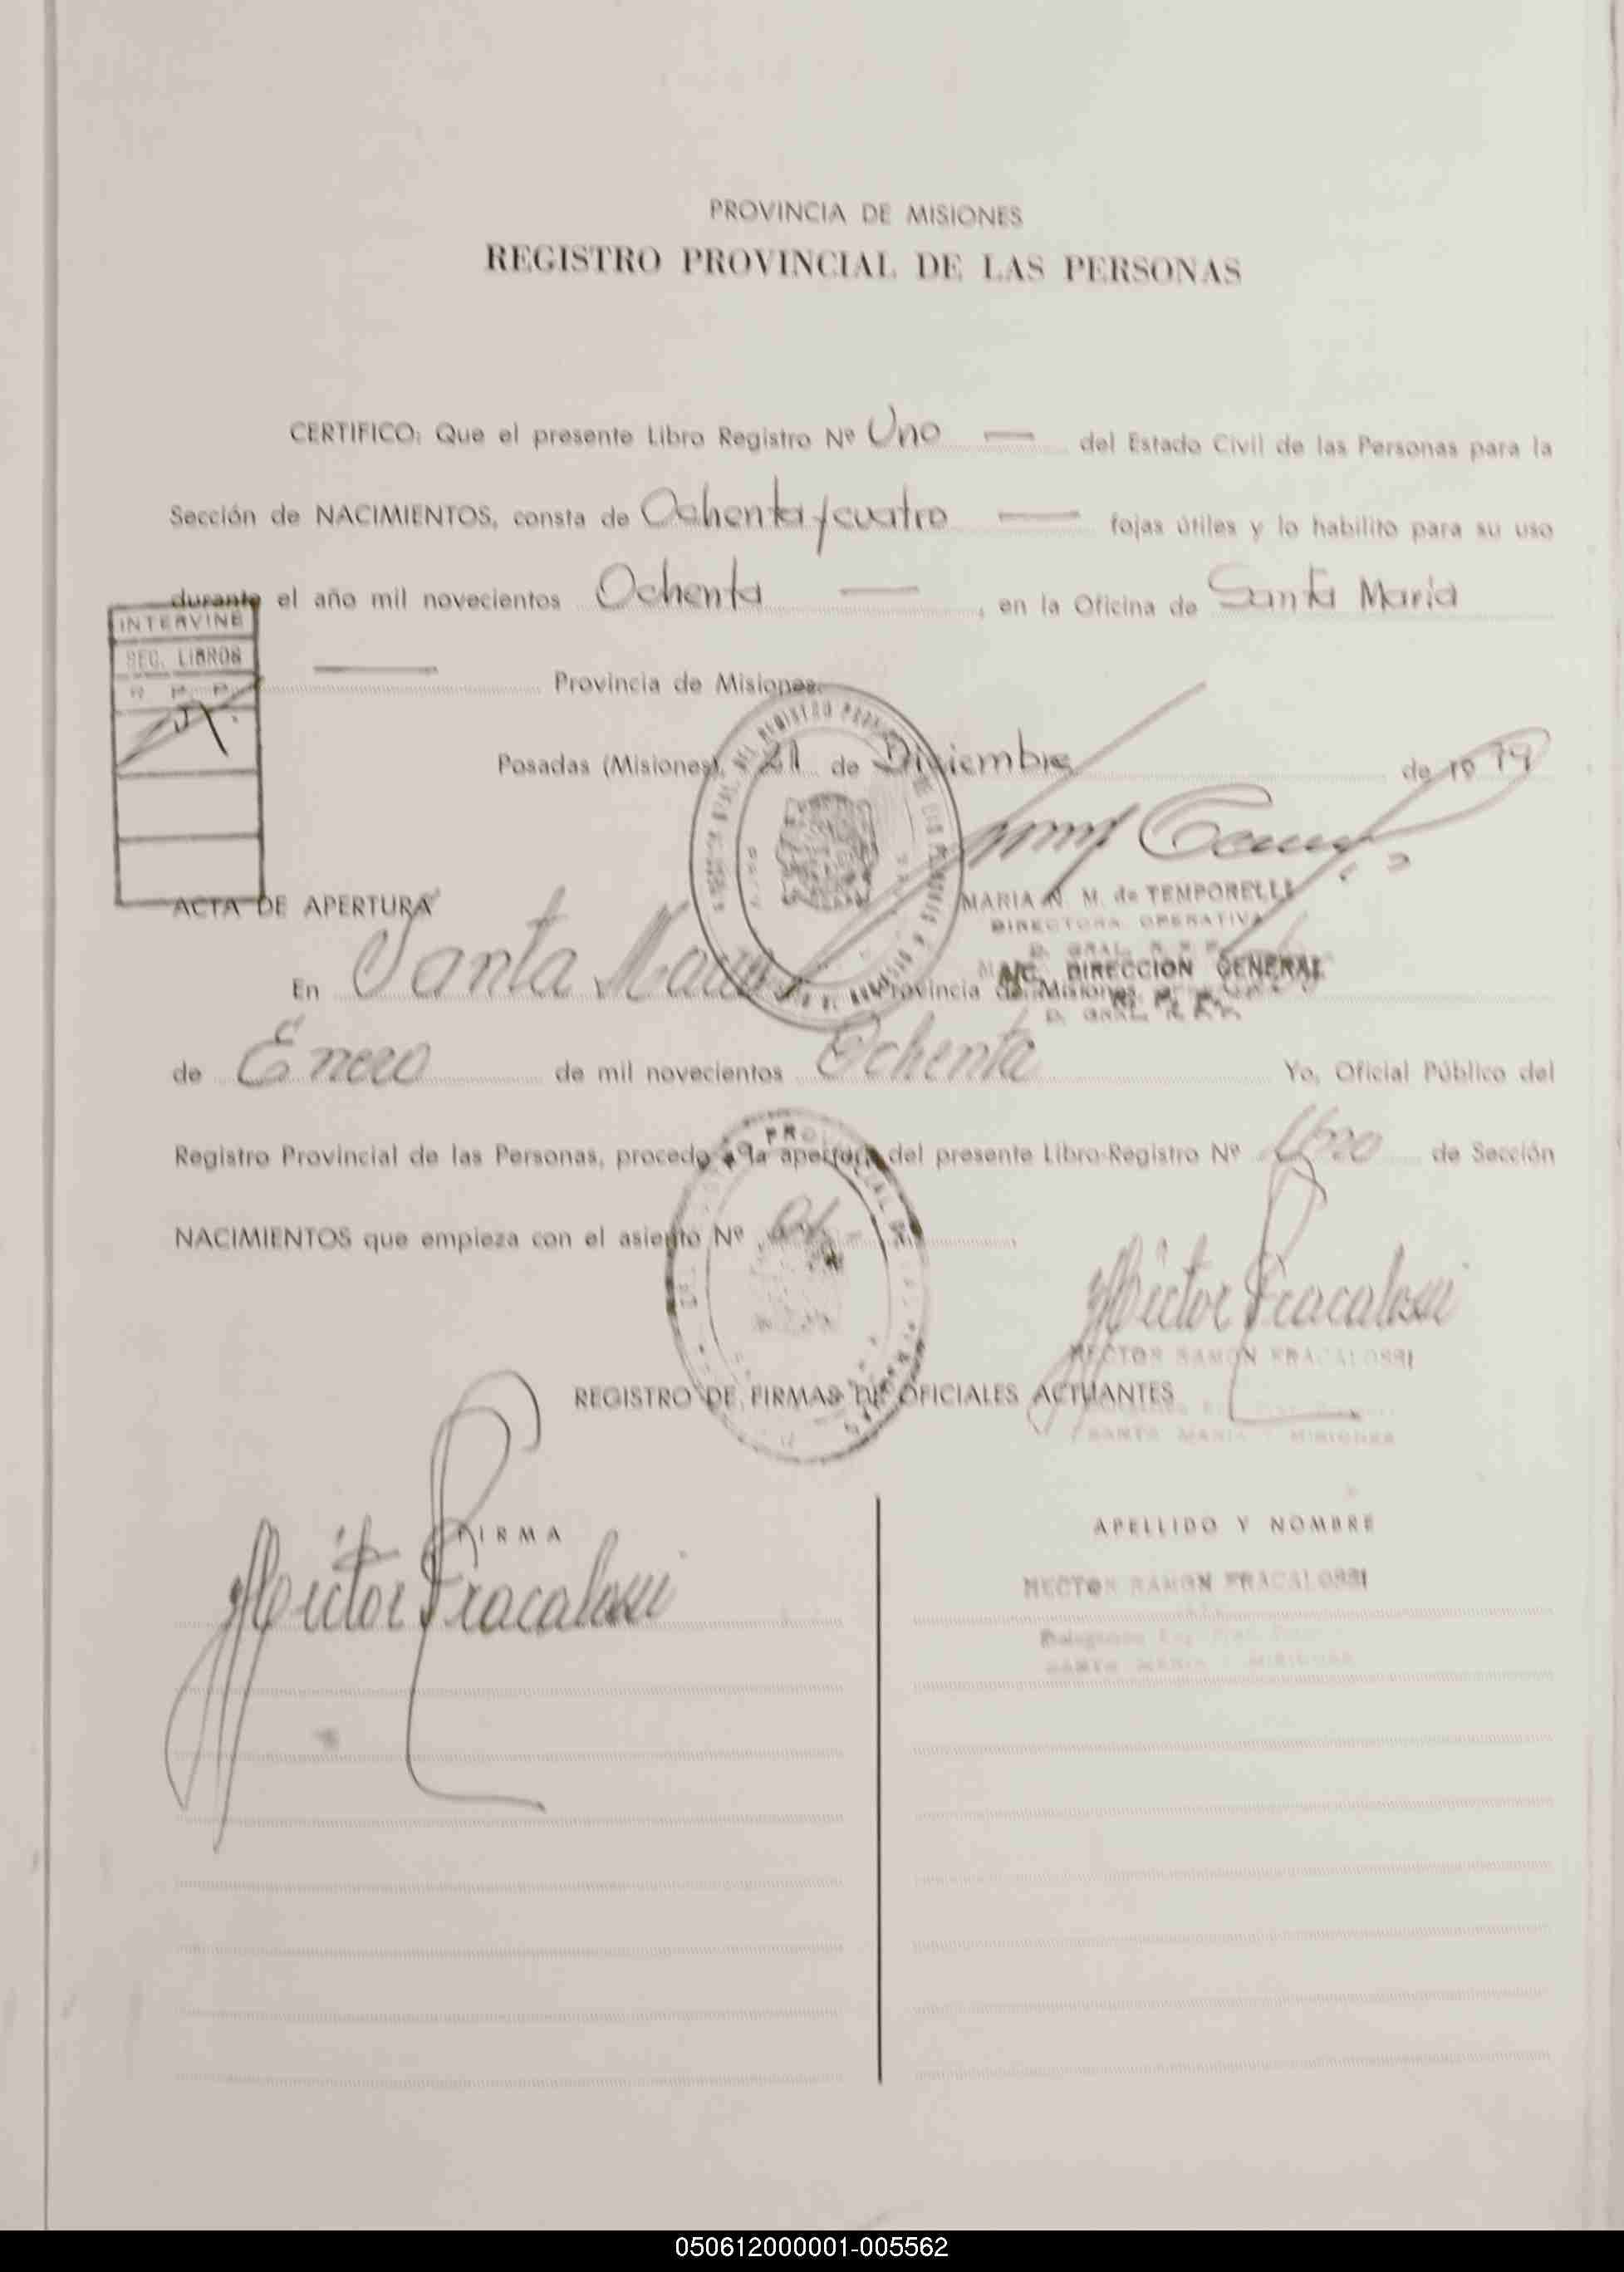 PROVINCIA DE MISIONES
REGISTRO PROVINCIAL DE LAS PERSONAS
CERTIFICO: Que el presente Libro Registro Nº Uno — del Estado Civil de las Personas para la
Sección de NACIMIENTOS, consta de Ochenta y cuatro — fojas útiles y lo habilito para su uso
durante el año mil novecientos Ochenta —, en la Oficina de Santa María
INTERVINE
SEC. LIBROS
— Provincia de Misiones.
Posadas (Misiones), 21 de Diciembre de 1979
MARIA N. M. de TEMPORELLI
DIRECTORA OPERATIVA
D. GRAL. R. P. P.
ACTA DE APERTURA
A/C. DIRECCION GENERAL
R. P. P.
En Santa María Provincia de Misiones,
D. GRAL. R. P. P.
de Enero de mil novecientos Ochenta Yo, Oficial Público del
Registro Provincial de las Personas, procedo a la apertura del presente Libro-Registro Nº Uno de Sección
NACIMIENTOS que empieza con el asiento Nº 01 -
Héctor Fracalossi
HECTOR RAMON FRACALOSSI
SANTA MARIA - MISIONES
REGISTRO DE FIRMAS DE OFICIALES ACTUANTES
FIRMA
APELLIDO Y NOMBRE
Héctor Fracalossi
HECTOR RAMON FRACALOSSI
SANTA MARIA - MISIONES
050612000001-005562